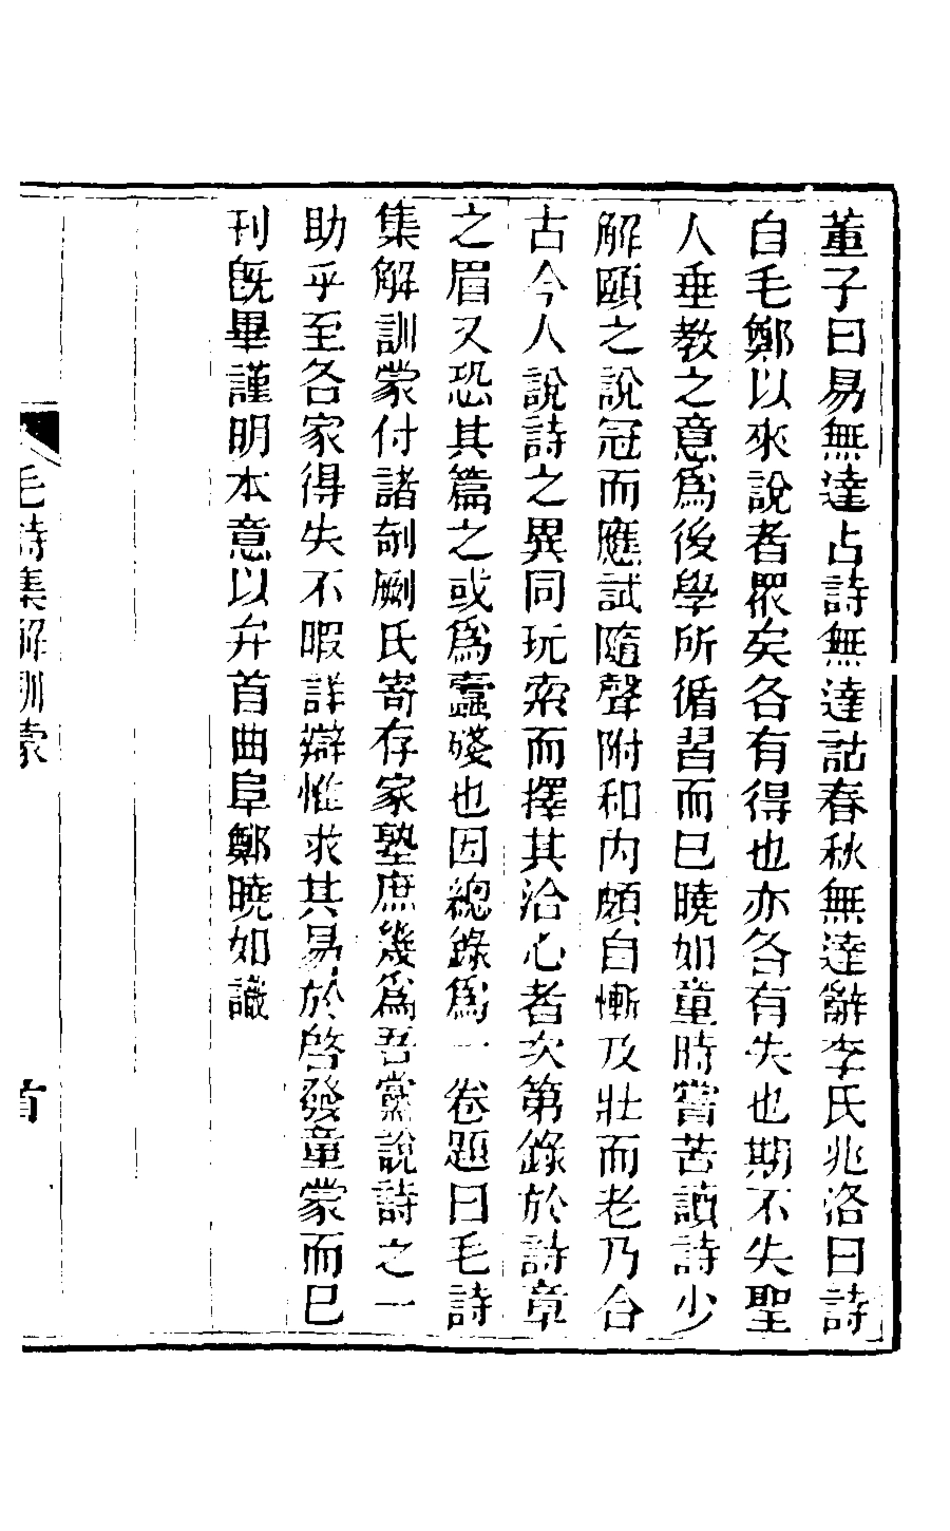 董子曰易無達占詩無達詁春秋無達辭李氏兆洛曰詩
自毛鄭以來說者眾矣各有得也亦各有失也期不失聖
人垂教之意爲後學所循習而已曉如童時嘗苦讀詩少
解頤之說冠而應試隨聲附和內頗自慚及壯而老乃合
古今人說詩之異同玩索而擇其洽心者次第錄於詩章
之眉又恐其篇之或爲蠹殘也因總錄爲一卷題曰毛詩
集解訓蒙付諸剞劂氏寄存家塾庶幾爲吾黨說詩之一
助乎至各家得失不暇詳辯惟求其易於啓發童蒙而已
刊旣畢謹明本意以弁首曲阜鄭曉如識
毛詩集解訓蒙
首